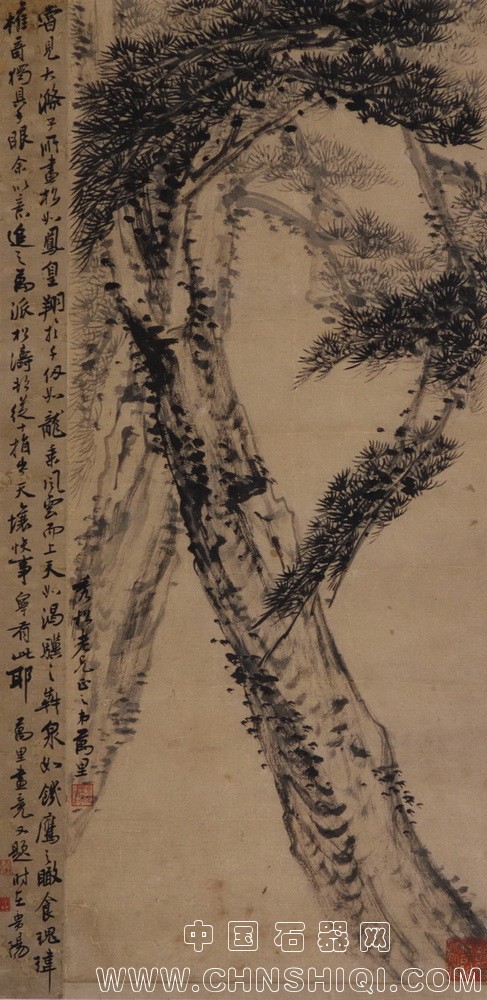 曾見大滌子所畫松如鳳皇翔於千仞如龍乘風雲而上天如渴驥之奔泉如饑鷹之瞰食瑰瑋
權奇獨具手眼余以意造之為派松濤於從十指出天壤快事寧有此耶 萬里畫竟又題時在貴陽
老兄正之弟萬里
中国石器网
WWW.CHNSHIQI.COM